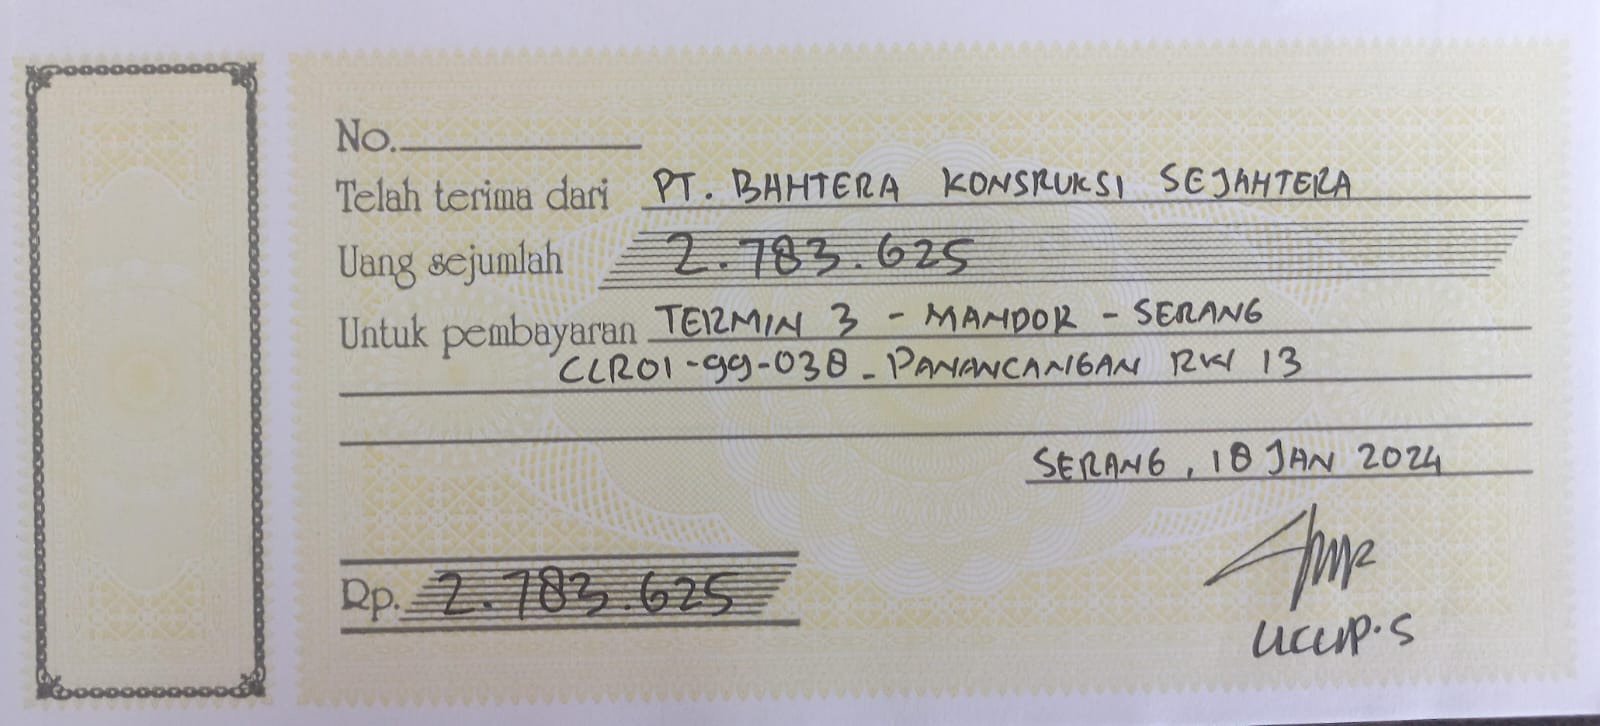 No.
Telah terima dari PT. BAHTERA KONSRUKSI SEJAHTERA
Uang sejumlah 2.783.625
Untuk pembayaran TERMIN 3 - MANDOR - SERANG
CLR01-99-038 - PANANCANGAN RW 13
SERANG, 18 JAN 2024
Rp. 2.783.625
UCUP.S